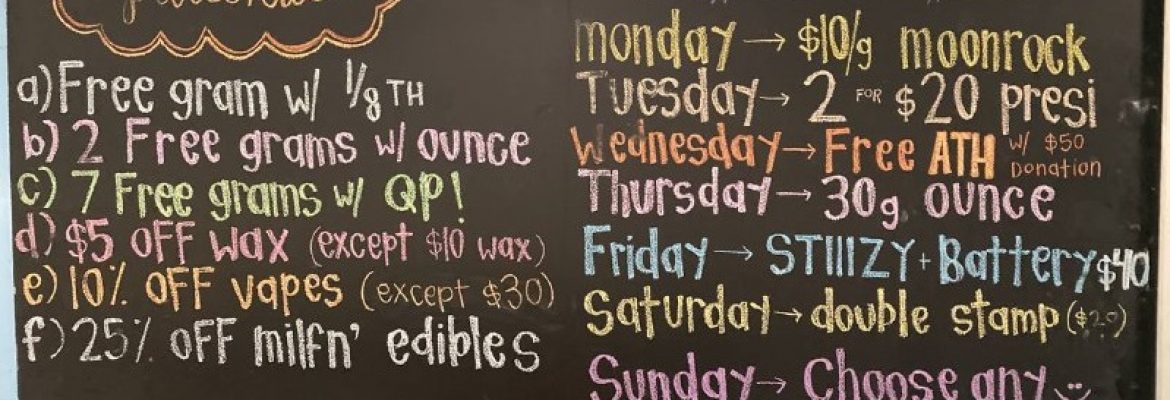 a) Free gram w/ 1/8TH
b) 2 Free grams w/ ounce
c) 7 Free grams w/ QP!
d) $5 OFF wax (except $10 wax)
e) 10% OFF vapes (except $30)
f) 25% OFF milfn' edibles
monday → $10/g moonrock
Tuesday → 2 FOR $20 presi
Wednesday → Free ATH w/ $50 Donation
Thursday → 30g ounce
Friday → STIIIZY + Battery $40
Saturday → double stamp ($20)
Sunday → Choose any